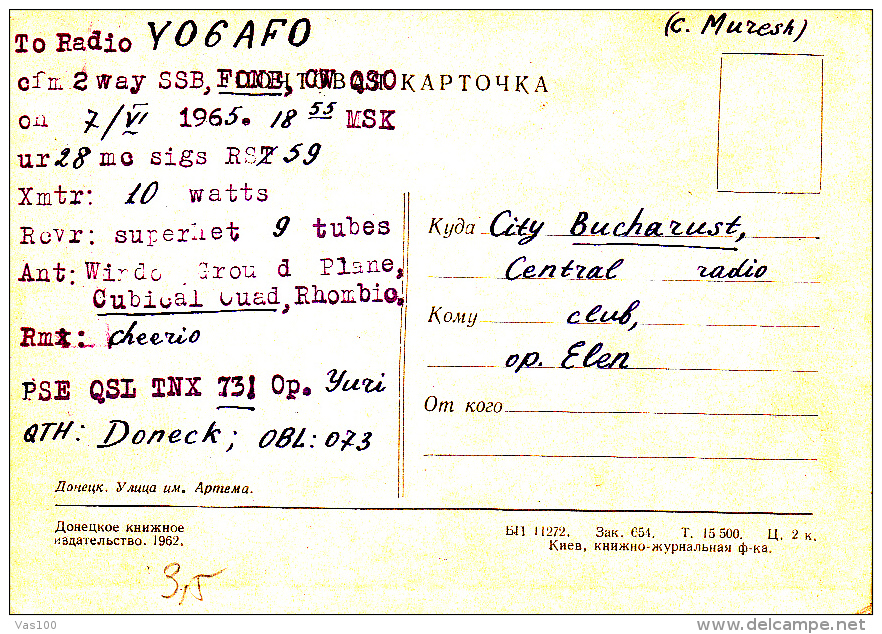 (c. Muresh)
To Radio YO6AFO
cfm 2 way SSB, FONE, CW QSO
ПОЧТОВАЯ КАРТОЧКА
on 7/VI 1965. 18 55 MSK
ur 28 mc sigs RST 59
Xmtr: 10 watts
Rcvr: superhet 9 tubes
Ant: Windo Ground Plane,
Cubical Quad, Rhombic.
Rmx: cheerio
PSE QSL TNX 73! Op. Yuri
QTH: Doneck; OBL: 073
Донецк. Улица им. Артема.
Донецкое книжное
издательство. 1962.
3,5
Куда City Bucharust,
Central radio
Кому club,
op. Elen
От кого
БП 11272. Зак. 654. Т. 15 500. Ц. 2 к.
Киев, книжно-журнальная ф-ка.
Vas100
www.delcampe.net